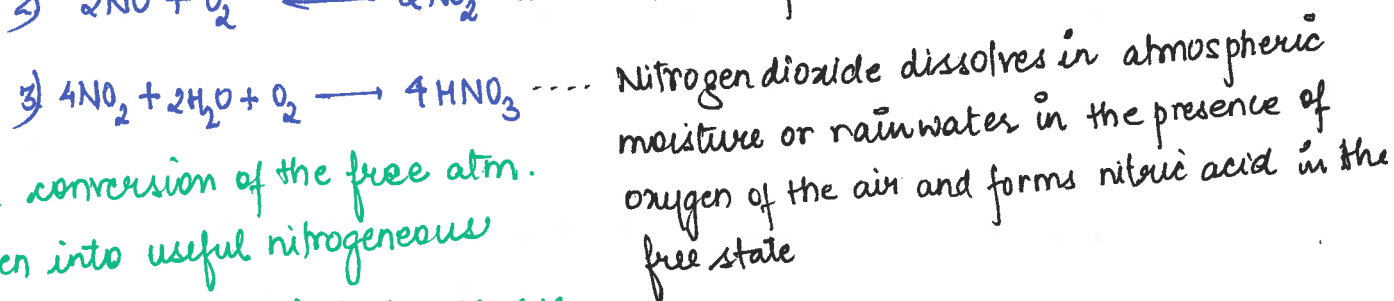 2) 2NO + O₂ 2NO₂
3) 4NO₂ + 2H₂O + O₂ ⟶ 4HNO₃ .... Nitrogen dioxide dissolves in atmospheric
moisture or rainwater in the presence of
oxygen of the air and forms nitric acid in the
free state
conversion of the free atm.
en into useful nitrogeneous